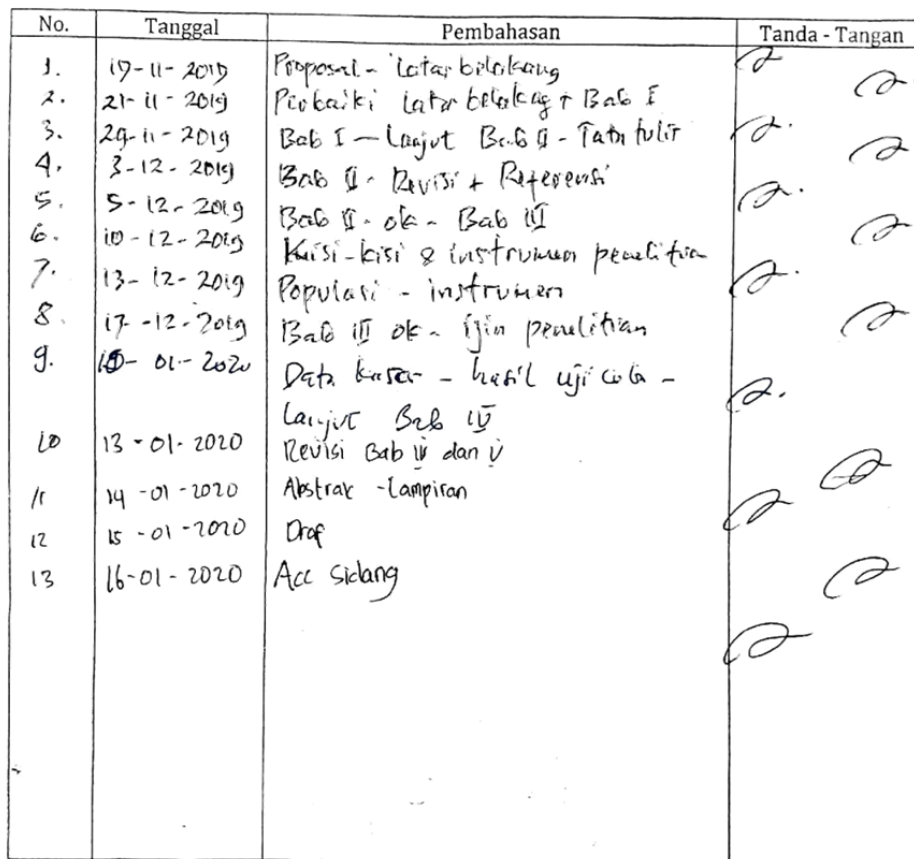 No. Tanggal Pembahasan Tanda - Tangan
1. 19-11-2019 Proposal - latar belakang
2. 21-11-2019 Perbaiki latar belakag + Bab I
3. 29-11-2019 Bab I - Lanjut Bab II - Tata tulis
4. 3-12-2019 Bab II - Revisi + Referensi
5. 5-12-2019 Bab II - ok - Bab III
6. 10-12-2019 Kisi-kisi & instrumen penelitian
7. 13-12-2019 Populasi - instrumen
8. 17-12-2019 Bab III ok - ijin penelitian
9. 01-2020 Data kasar - hasil uji coba -
Lanjut Bab IV
10 13-01-2020 Revisi Bab IV dan V
11 14-01-2020 Abstrak - Lampiran
12 15-01-2020 Draf
13 16-01-2020 Acc Sidang